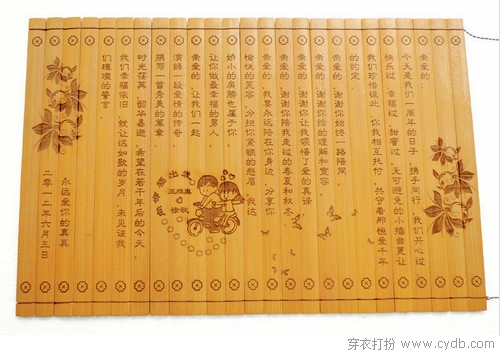 亲爱的：
今天是我们一周年的日子，携手同行，我们开心过、
快乐过，幸福过，甜蜜过，无可避免的小插曲更让
我们珍惜彼此，你我相互托付，共守着那恒爱千年
的约定。
亲爱的，谢谢你始终一路陪同
亲爱的，谢谢你给的理解和宽容
亲爱的，谢谢你让我领悟了爱的真谛
亲爱的，谢谢你陪我走过的春夏和秋冬
亲爱的，我要永远陪在你身边，分享你
愉悦的笑容，分担你紧锁的愁眉，我这
娇小的肩膀也属于你
让你做最幸福的男人
亲爱的，让我们一起
演绎一段爱情的传奇
撰写一首隽美的篇章
时光荏苒，韶华易逝，希望在若干年后的今天，
我们幸福依旧，就让这如歌的岁月，来见证我
们璀璨的誓言。
永远爱你的真真
二零一二年六月三日
出发
穿衣打扮 - www.cydb.com